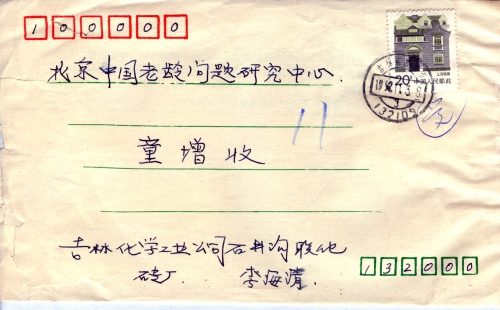 100000
北京中国老龄问题研究中心.
20分
上海民居
中国人民邮政
11
童增收
132105
吉林化学工业公司石井沟联化
砖厂 李海清.
132000